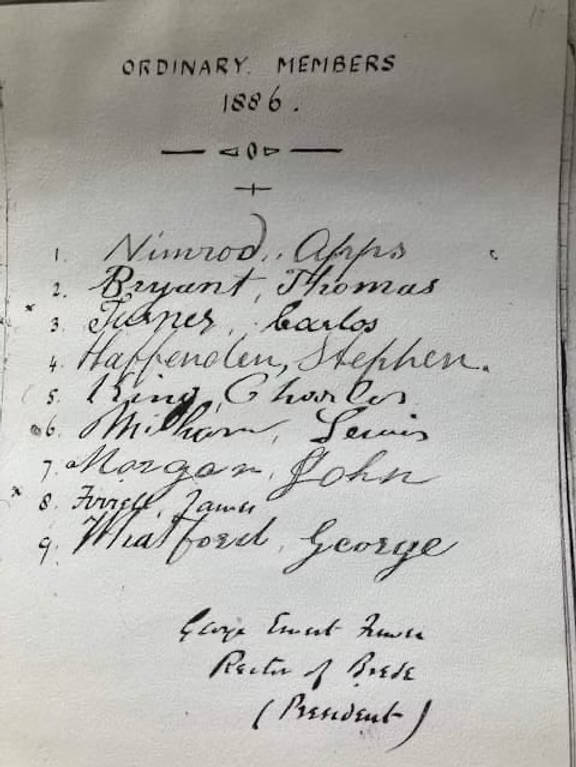 ORDINARY MEMBERS
1886.
1. Nimrod, Apps
2. Bryant, Thomas
3. Turner, Carlos
4. Haffenden, Stephen.
5. King, Charles
6. Milham, Lewis
7. Morgan, John
8. James
9. George
George Ernest
Rector of Brede
(President)